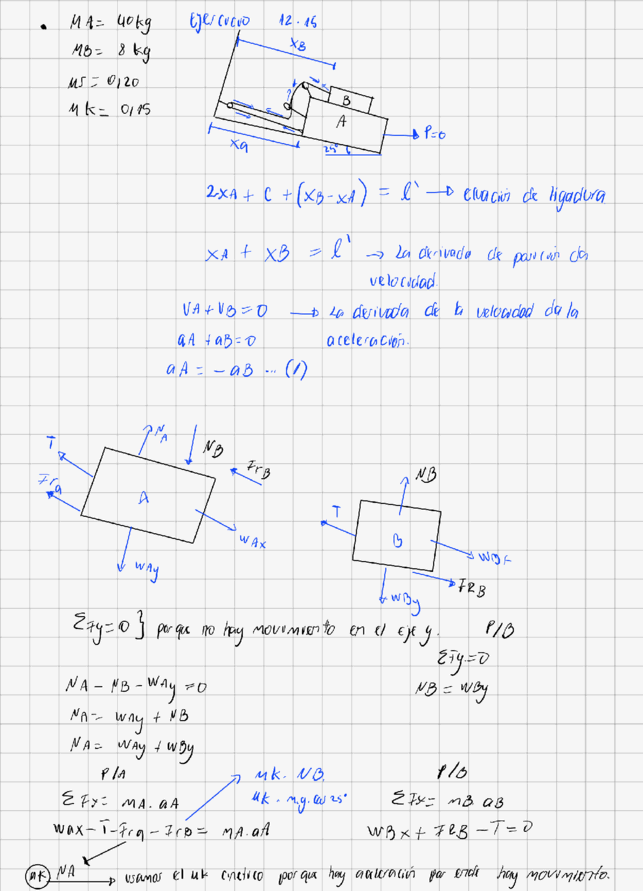 • MA = 40 kg
Ejercicio 12.15
MB = 8 kg
μs = 0,20
μk = 0,15
XB
B
A
P=0
XA
25°
2XA + C + (XB - XA) = l' → ecuación de ligadura
XA + XB = l' → La derivada de posición da
velocidad.
VA + VB = 0 → La derivada de la velocidad da la
aceleración.
aA + aB = 0
aA = - aB ... (1)
T
NA
NB
FrB
Fra
A
WAx
WAy
NB
T
B
WBx
FRB
WBy
ΣFy = 0 } porque no hay movimiento en el eje y.
P/B
ΣFy = 0
NA - NB - WAy = 0
NB = WBy
NA = WAy + NB
NA = WAy + WBy
P/A
μk . NB
μk . m.g.cos 25°
P/B
ΣFx = mA . aA
ΣFx = mB aB
Wax - T - Fra - FrB = mA . aA
WBx + FRB - T = 0
μk NA → usamos el uk cinetico porque hay aceleración por ende hay movimiento.